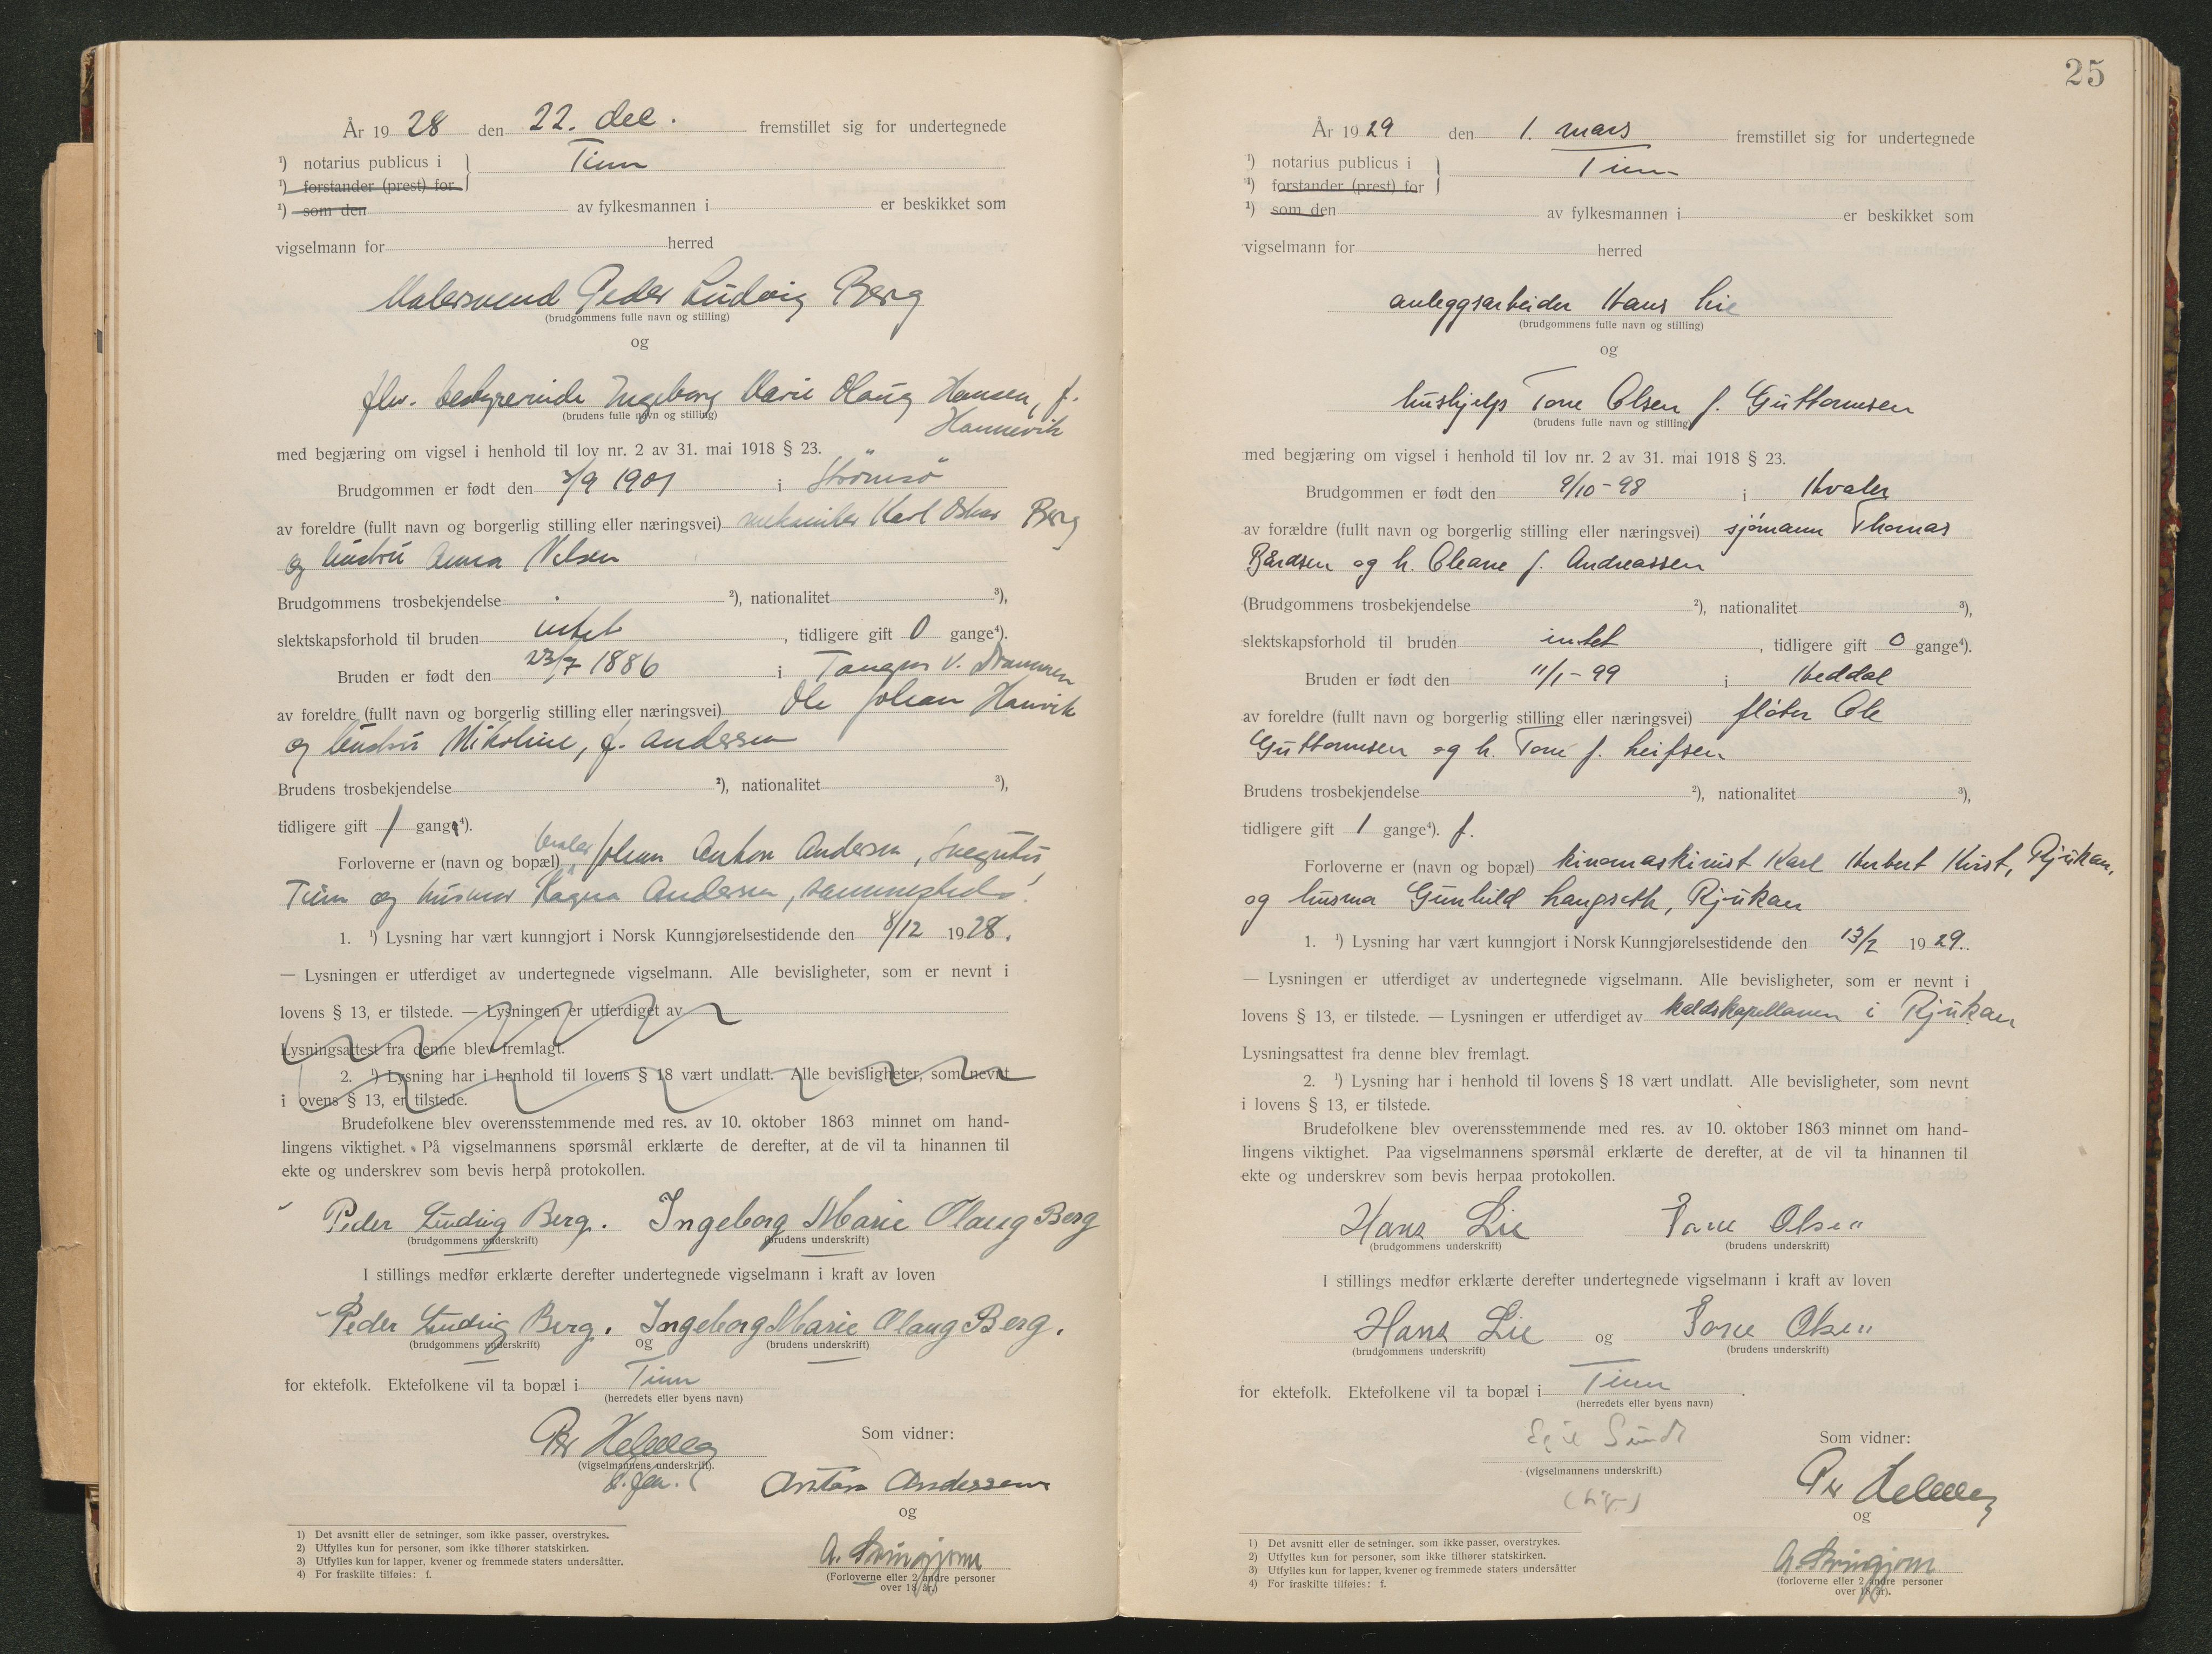 År 19 28 den 22. dec. fremstillet sig for undertegnede
¹) notarius publicus i } Tinn
¹) forstander (prest) for
¹) som den av fylkesmannen i er beskikket som
vigselmann for herred
Malersvend Peder Ludvig Berg
(brudgommens fulle navn og stilling)
og
bestyrerinde Ingeborg Marie Olaug Hansen, f.
(brudens fulle navn og stilling)
Hannevik
med begjæring om vigsel i henhold til lov nr. 2 av 31. mai 1918 § 23.
Brudgommen er født den /9 1901 i Strömsö
av foreldre (fullt navn og borgerlig stilling eller næringsvei) mekaniker Karl Oskar Berg
og hustru Anna Nilsen
Brudgommens trosbekjendelse ²), nationalitet ³),
slektskapsforhold til bruden intet, tidligere gift 0 gange⁴).
Bruden er født den 23/7 1886 i Tangen v. Drammen
av foreldre (fullt navn og borgerlig stilling eller næringsvei) Ole Johan Hanvik
og hustru Nikoline, f. Andersen
Brudens trosbekjendelse ²), nationalitet ³),
tidligere gift 1 gang⁴).
Forloverne er (navn og bopæl), maler Johan Anton Andersen,
Tinn og husmor Ragna Andersen, sammesteds.
1. ¹) Lysning har vært kunngjort i Norsk Kunngjørelsestidende den 8/12 1928.
— Lysningen er utferdiget av undertegnede vigselmann. Alle bevisligheter, som er nevnt i
lovens § 13, er tilstede. — Lysningen er utferdiget av
Lysningsattest fra denne blev fremlagt.
2. ¹) Lysning har i henhold til lovens § 18 vært undlatt. Alle bevisligheter, som nevnt
i lovens § 13, er tilstede.
Brudefolkene blev overensstemmende med res. av 10. oktober 1863 minnet om hand-
lingens viktighet. På vigselmannens spørsmål erklærte de derefter, at de vil ta hinannen til
ekte og underskrev som bevis herpå protokollen.
Peder Ludvig Berg. Ingeborg Marie Olaug Berg
(brudgommens underskrift) (brudens underskrift)
I stillings medfør erklærte derefter undertegnede vigselmann i kraft av loven
Peder Ludvig Berg. og Ingeborg Marie Olaug Berg.
(brudgommens underskrift) (brudens underskrift)
for ektefolk. Ektefolkene vil ta bopæl i Tinn
(herredets eller byens navn)
Per Helweg Som vidner:
(vigselmannens underskrift).
Anton Anderssen
og
(Forloverne eller 2 andre personer
over 18 år.)
1) Det avsnitt eller de setninger, som ikke passer, overstrykes.
2) Utfylles kun for personer, som ikke tilhører statskirken.
3) Utfylles kun for lapper, kvener og fremmede staters undersåtter.
4) For fraskilte tilføies: f.
25
År 19 29 den 1. mars fremstillet sig for undertegnede
¹) notarius publicus i } Tinn
¹) forstander (prest) for
¹) som den av fylkesmannen i er beskikket som
vigselmann for herred
anleggsarbeider Hans Lie
(brudgommens fulle navn og stilling)
og
hushjelp Tone Olsen f. Guttormsen
(brudens fulle navn og stilling)
med begjæring om vigsel i henhold til lov nr. 2 av 31. mai 1918 § 23.
Brudgommen er født den 9/10-98 i Hvaler
av forældre (fullt navn og borgerlig stilling eller næringsvei) sjømann Thomas
Bårdsen og h. Oleane f. Andreassen
(Brudgommens trosbekjendelse ²), nationalitet ³),
slektskapsforhold til bruden intet, tidligere gift 0 gange⁴).
Bruden er født den 11/1-99 i Heddal
av foreldre (fullt navn og borgerlig stilling eller næringsvei) fløter Ole
Guttormsen og h. Tone f. Leifsen
Brudens trosbekjendelse ²), nationalitet ³),
tidligere gift 1 gange⁴). f.
Forloverne er (navn og bopæl) kinomaskinist Karl Herbert Kvist, Rjukan,
og husmor Gunhild Langseth, Rjukan
1. ¹) Lysning har vært kunngjort i Norsk Kunngjørelsestidende den 13/2 1929.
— Lysningen er utferdiget av undertegnede vigselmann. Alle bevisligheter, som er nevnt i
lovens § 13, er tilstede. — Lysningen er utferdiget av kaldskapellanen i Rjukan
Lysningsattest fra denne blev fremlagt.
2. ¹) Lysning har i henhold til lovens § 18 vært undlatt. Alle bevisligheter, som nevnt
i lovens § 13, er tilstede.
Brudefolkene blev overensstemmende med res. av 10. oktober 1863 minnet om hand-
lingens viktighet. Paa vigselmannens spørsmål erklærte de derefter, at de vil ta hinannen til
ekte og underskrev som bevis herpaa protokollen.
Hans Lie Tone Olsen
(brudgommens underskrift) (brudens underskrift)
I stillings medfør erklærte derefter undertegnede vigselmann i kraft av loven
Hans Lie og Tone Olsen
(brudgommens underskrift) (brudens underskrift)
for ektefolk. Ektefolkene vil ta bopæl i Tinn.
(herredets eller byens navn)
Egil Sundt Som vidner:
(vigselmannens underskrift.)
Per Helweg
og
(forloverne eller 2 andre personer
over 18 år).
1) Det avsnitt eller de setninger, som ikke passer, overstrykes.
2) Utfylles kun for personer, som ikke tilhører statskirken.
3) Utfylles kun for lapper, kvener og fremmede staters undersåtter
4) For fraskilte tilføies: f.